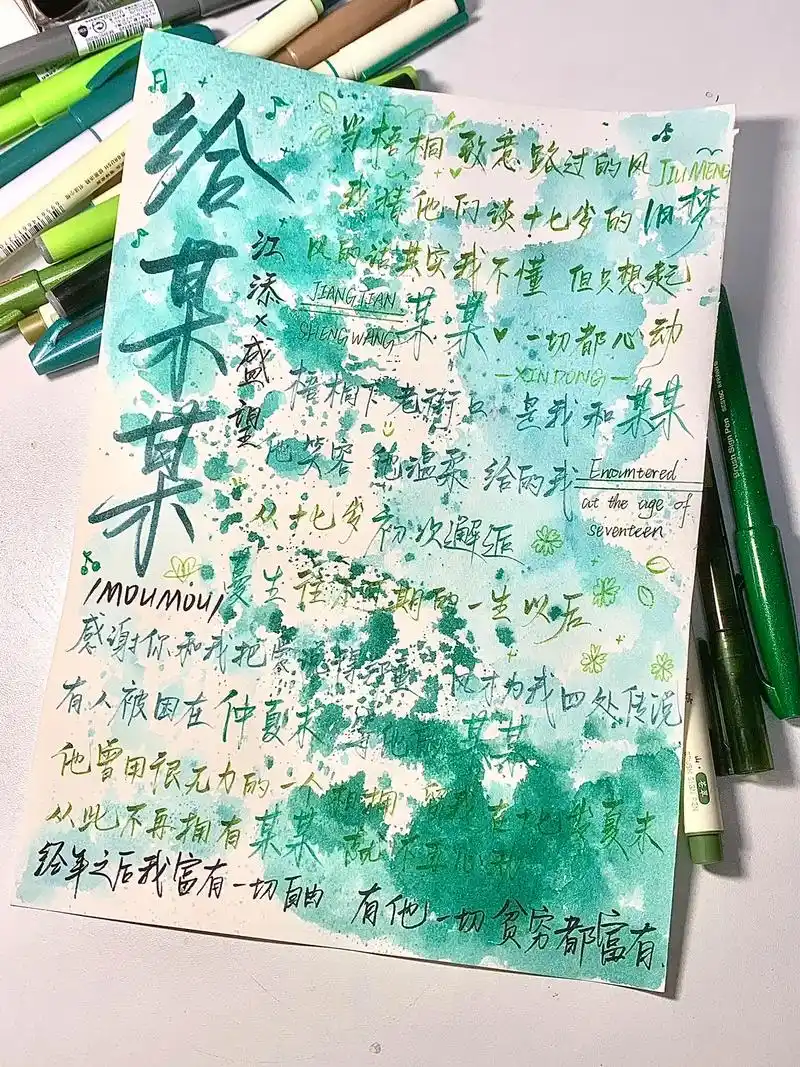 给某某
江添×盛望
/MOUMOU/
当梧桐敬意路过的风
JIUMENG
我猜他们谈十七岁的旧梦
风的话其实我不懂 但只想起
JIANGTIAN
SHENGWANG
某某 一切都心动
—XINDONG—
梧桐下老街口 是我和某某
他笑容 他温柔 给的我
Enountered
at the age of
seventeen
从十七岁初次邂逅
蔓生 期的一生以后
感谢你和我把 风才为我四处传说
有人被困在仲夏末 等他 某某
他曾用很无力的一个 拥抱 在十七岁夏末
从此不再拥有某某 就不再
经年之后我富有一切自由 有他一切贫穷都富有.